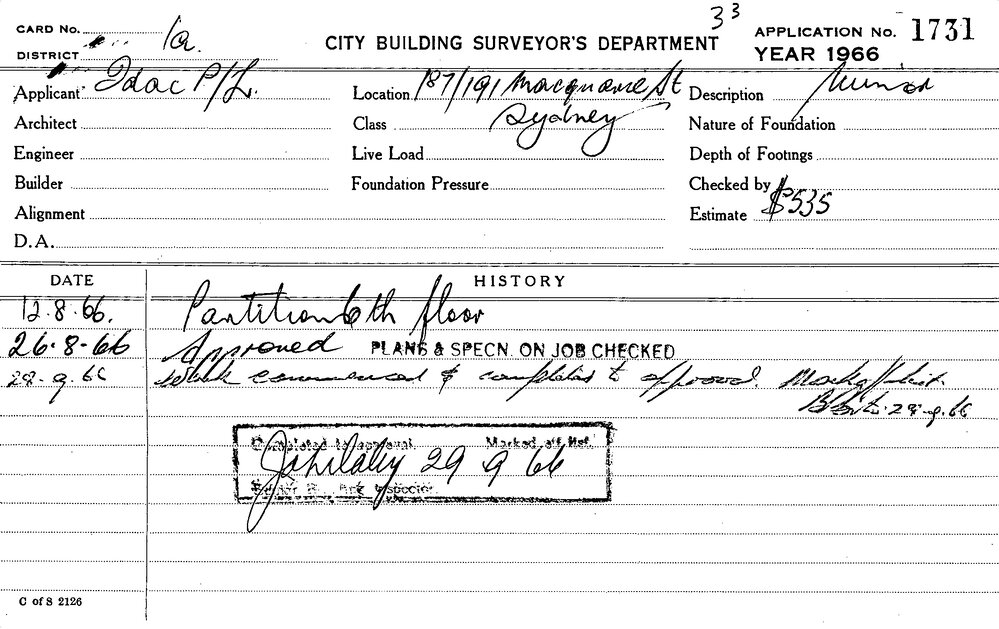 33
CARD No. 1a. CITY BUILDING SURVEYOR'S DEPARTMENT APPLICATION No. 1731
DISTRICT YEAR 1966
Applicant P/L. Location 187/191 Macquarie St Description Minor
Architect Class Sydney Nature of Foundation
Engineer Live Load Depth of Footings
Builder Foundation Pressure Checked by
Alignment Estimate $535
D.A.
DATE HISTORY
12.8.66. Partition 6th floor
26.8.66 Approved PLANS & SPECN. ON JOB CHECKED
28.9.66 Work commenced & completed to approval. Mark off list.
28.9.66
Completed to approval. Marked off list.
29 9 66
Senior Building Inspector.
C of S 2126